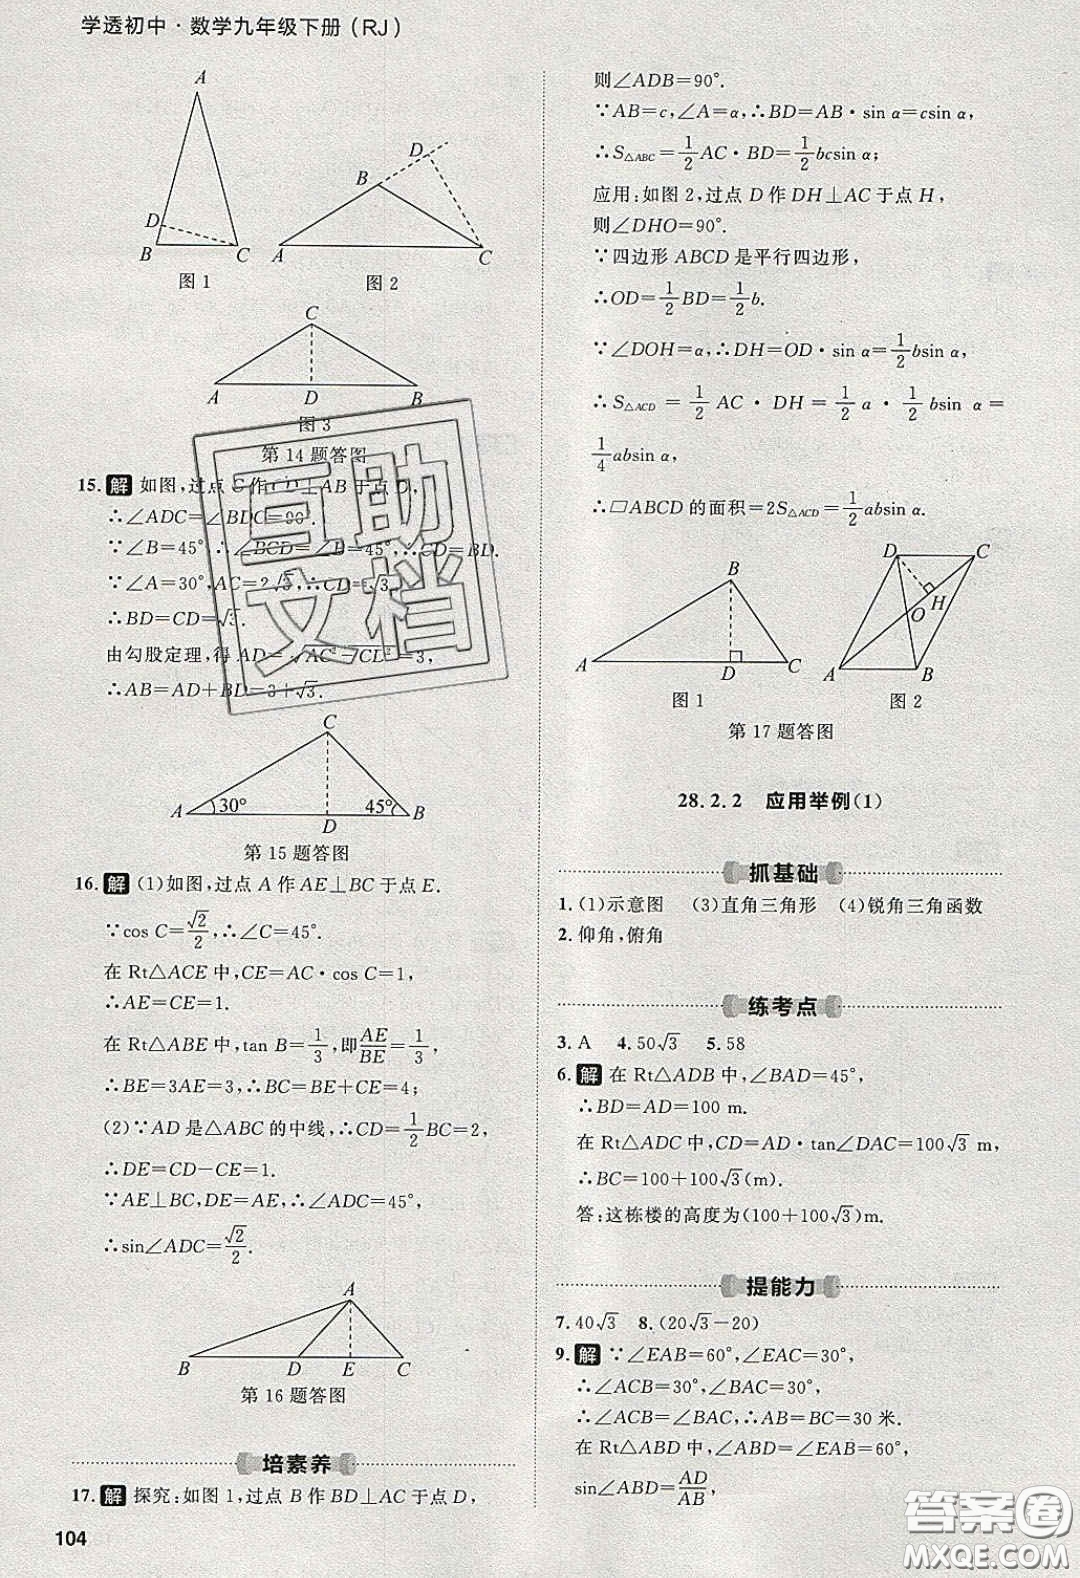 学透初中·数学九年级下册(RJ)
A
D
B
C
图1
D
B
A
C
图2
C
A
D
B
图3
第14题答图
15.解 如图,过点C作CD⊥AB于点D,
∴∠ADC=∠BDC=90°.
∵∠B=45°,∴∠BCD=∠B=45°,∴CD=BD.
∵∠A=30°,AC=2√3,∴CD=√3,
∴BD=CD=√3.
由勾股定理,得AD=√AC²−CD²=3,
∴AB=AD+BD=3+√3.
C
A
30°
45°
B
D
第15题答图
16.解 (1)如图,过点A作AE⊥BC于点E.
∵cos C=√2/2,∴∠C=45°.
在Rt△ACE中,CE=AC·cos C=1,
∴AE=CE=1.
在Rt△ABE中,tan B=1/3,即AE/BE=1/3,
∴BE=3AE=3,∴BC=BE+CE=4;
(2)∵AD是△ABC的中线,∴CD=1/2BC=2,
∴DE=CD−CE=1.
∵AE⊥BC,DE=AE,∴∠ADC=45°,
∴sin∠ADC=√2/2.
A
B
D
E
C
第16题答图
培素养
17.解 探究:如图1,过点B作BD⊥AC于点D,
104
则∠ADB=90°.
∵AB=c,∠A=α,∴BD=AB·sin α=csin α,
∴S△ABC=1/2AC·BD=1/2bcsin α;
应用:如图2,过点D作DH⊥AC于点H,
则∠DHO=90°.
∵四边形ABCD是平行四边形,
∴OD=1/2BD=1/2b.
∵∠DOH=α,∴DH=OD·sin α=1/2bsin α,
∴S△ACD=1/2AC·DH=1/2a·1/2bsin α=
1/4absin α,
∴□ABCD的面积=2S△ACD=1/2absin α.
B
A
D
C
图1
D
C
O
H
A
B
图2
第17题答图
28.2.2 应用举例(1)
抓基础
1.(1)示意图 (3)直角三角形 (4)锐角三角函数
2.仰角,俯角
练考点
3.A 4.50√3 5.58
6.解 在Rt△ADB中,∠BAD=45°,
∴BD=AD=100 m.
在Rt△ADC中,CD=AD·tan∠DAC=100√3 m,
∴BC=100+100√3(m).
答:这栋楼的高度为(100+100√3)m.
提能力
7.40√3 8.(20√3−20)
9.解 ∵∠EAB=60°,∠EAC=30°,
∴∠ACB=30°,∠BAC=30°,
∴∠ACB=∠BAC,∴AB=BC=30米.
在Rt△ABD中,∠ABD=∠EAB=60°,
sin∠ABD=AD/AB,
互助
文档
答案圈
MXQE.COM